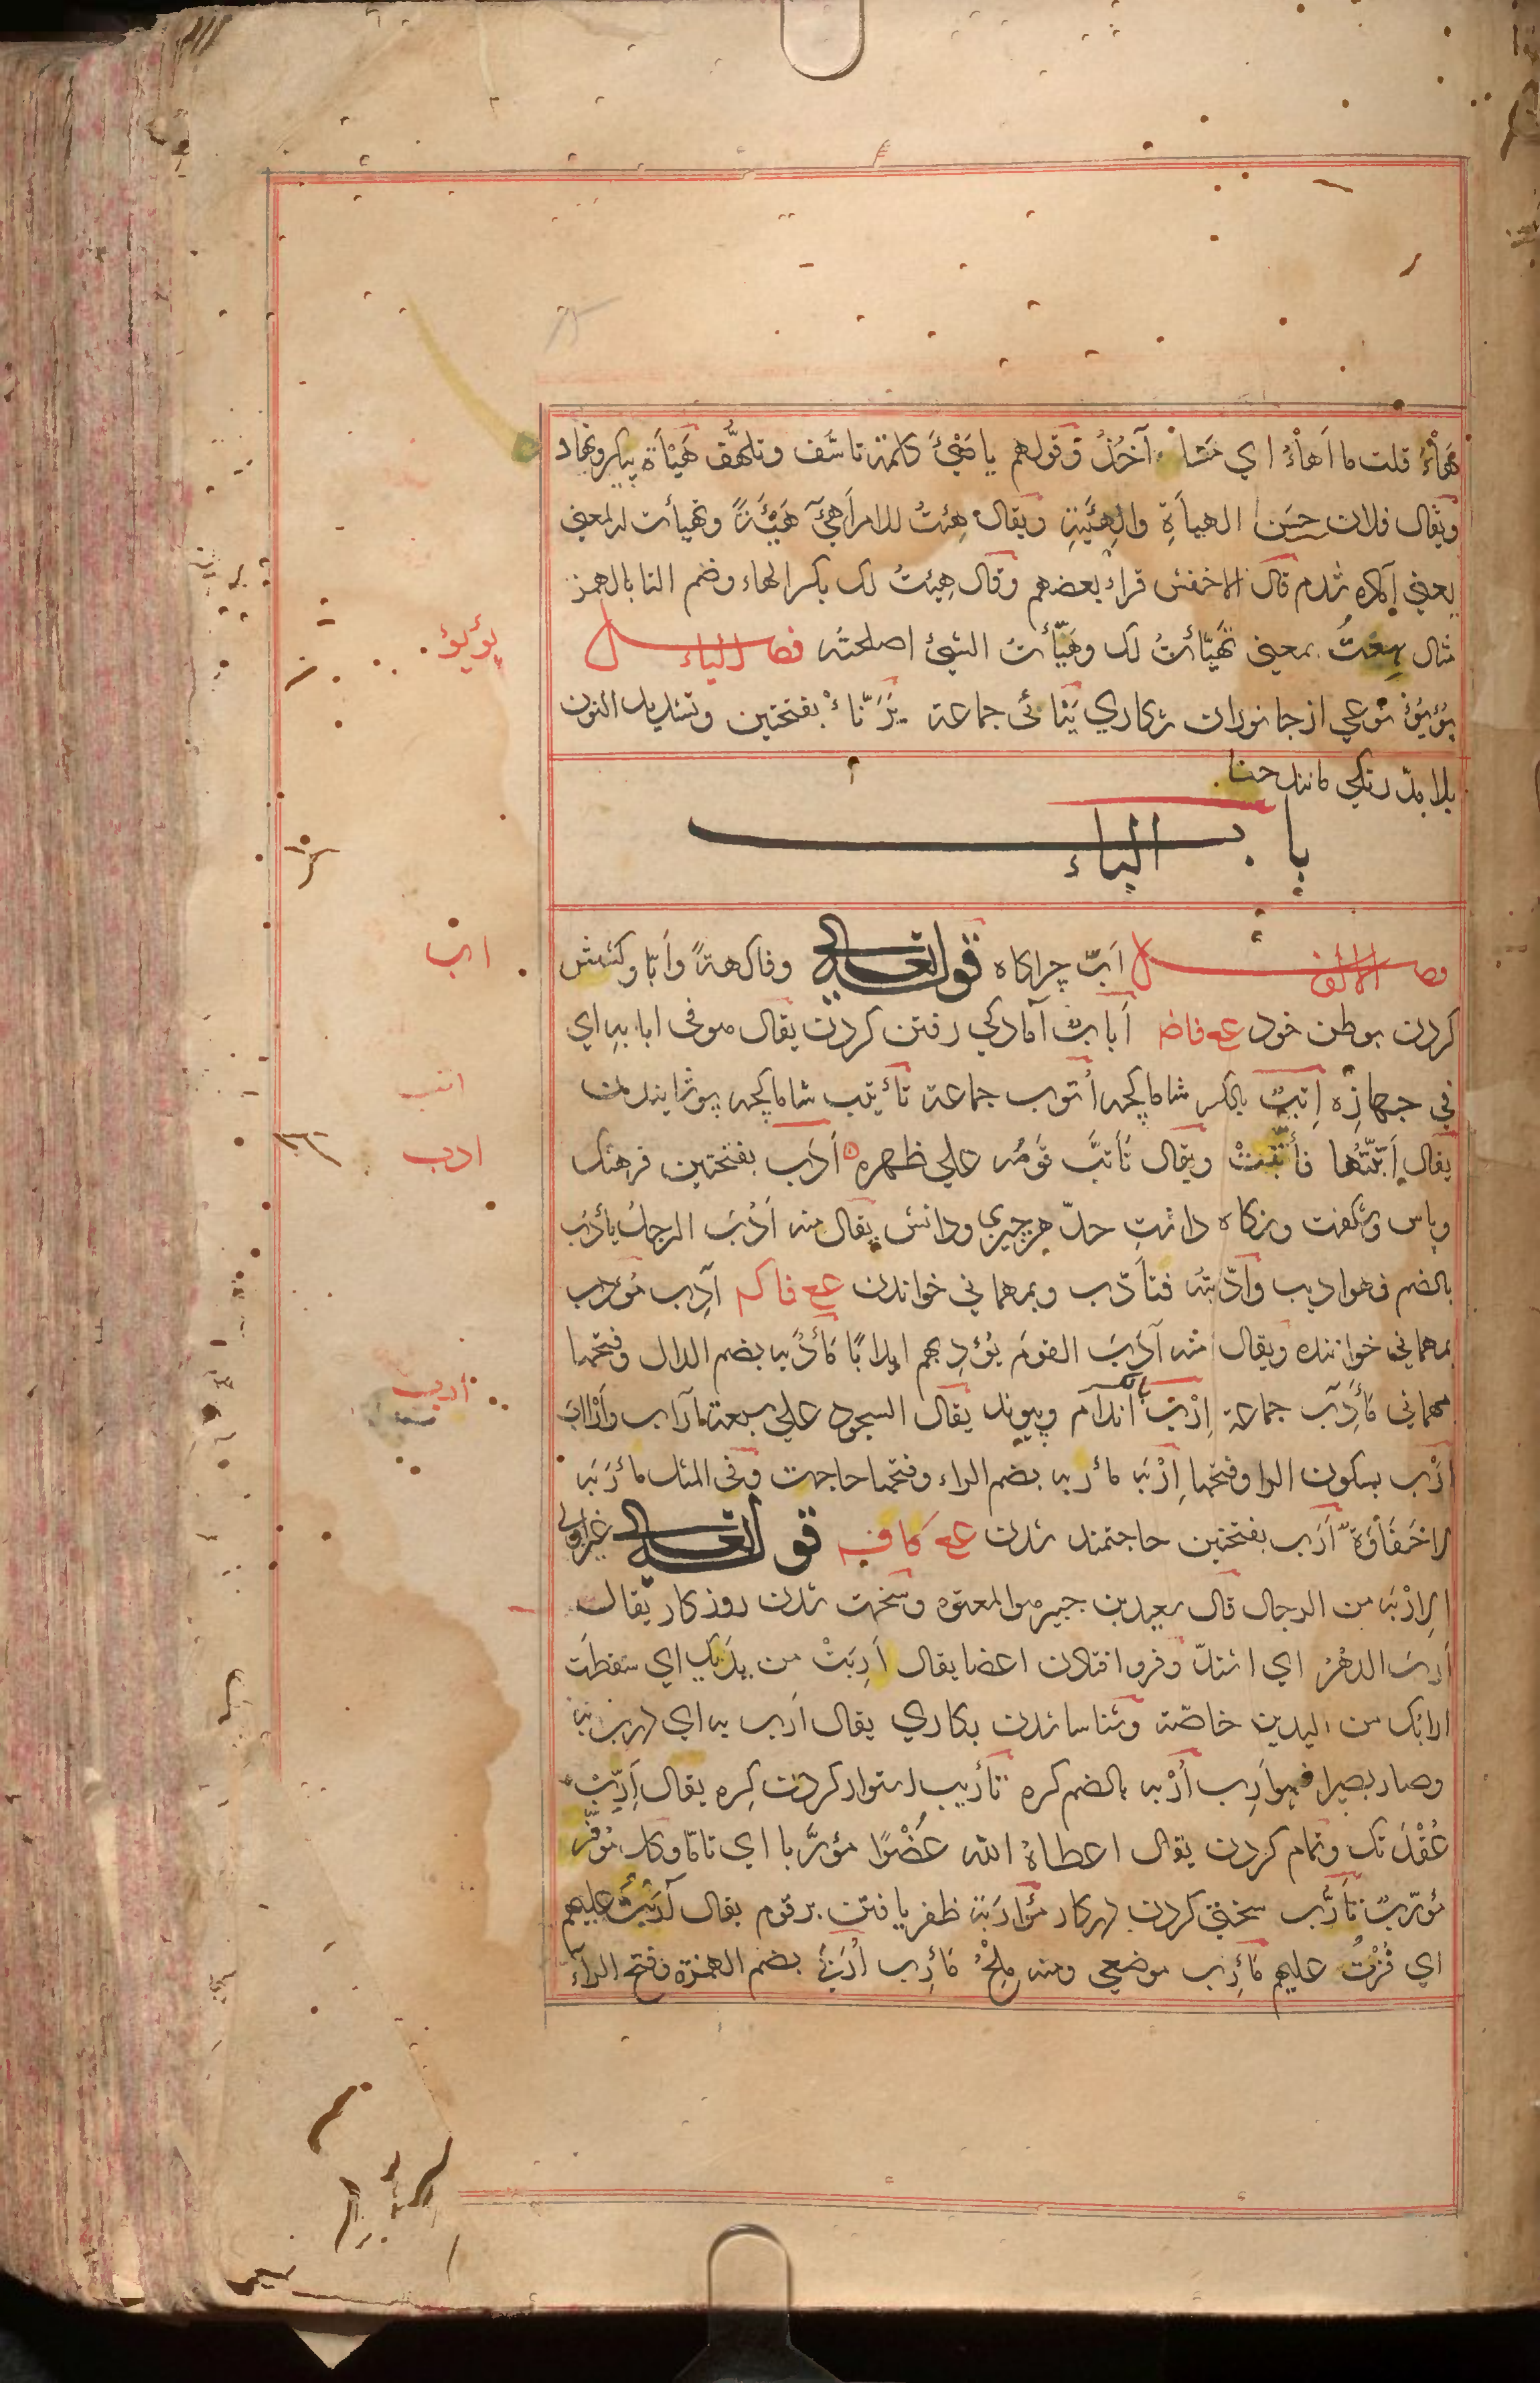 هَاْءُ قلت ما اَهاْءُ اي مَشا آخُذُ وَقولهم يا هَيْئَ كلمة تاسّف وتلهُّف هَيْأة پيكر ونهاد
ويُقال فلان حسَن الهيأَةِ والهِئَيةِ ويقال هِئتُ للامر اَهيْٓ هَيْئَةً وتهيأت له بمعني
يعني آماده شدم قال الاخفش قراء بعضهم وقال هِيئتُ لك بكسر الهاء وضم التا بالهمز
مثال هِعْتُ بمعني تَهَيّأتُ لك وهَيّأتُ الشيئ اصلحتُه فصل الياء
يُؤيُؤ نوعي از جانوران شكاري يَئائي جماعة يَرَنّاءْ بفتحتين وتشديد النون
بلا مدّ رنكي مانند حنا
باب الباء
فصل الالف اَبّ چراكاه قوله تعالي وفاكهةً واَبًّا وكشش
كردن بوطن خود ع فاض اَبابٌ آمادكي رفتن كردن يقال هو في ابابه اي
في جهازِه اِتبٌ بالكسر شاماكچه اُتوب جماعة تأتيب شاماكچه پوشانيدن
يقال اَتّبتُها فأتّبتْ ويقال تَأتبَّ قَوسُه علي ظهره اَدَب بفتحتين فرهنك
وپاس وشكفت ونكاه داشتِ حدّ هر چيزي ودانش يقال منه اَدُبَ الرجلُ يأدُبُ
بالضم فهو اديب وادّبتُه فتأدّب وبمهماني خواندن ع فاكم آدِب مُؤدِب
بمهماني خواننده ويقال منه آدَبَ القومَ يُؤدِبهم ايدابًا مَأدُبه بضم الدال وفتحها
مهماني مَأدِب جماعة اِرْب اندام وپيوند يقال السجود علي سبعة آراب واَرْااب
اَرْب بسكون الرا وفتحها اِرْبَه مأربه بضم الراء وفتحها حاجت وفي المثل مأرَبَه
لا حَفَاْوَة اَرَب بفتحتين حاجتمند شدن ع كافه قوله تعالي غير اولي
الِارْبَه من الرجال قال سعيد بن جبير هو المعتوه وسخت شدن روزكار يقال
اَرِبَ الدهْرُ اي اشتدّ وفرو افتادن اعضا يقال اَرِبَتْ من يدَيك اي سَقطَت
ارابُك من اليدين خاصّة وشناسا شدن بكاري يقال اَرِب به اي دَرِبَ به
وصار بصيرا فهو اَرِب اُرْبه بالضم كره تأريب استوار كردن كِره يقال اَرِّبْ
عُقْدَتَك وتمام كردن يقال اعطاهُ الله عُضْوًا مؤرَّبا اي تامّا وكل مُوَفّرٍ
مُؤرّبٌ تَأَرُّب سختي كردن در كار مُؤارَبَة ظفر يافتن بر قوم يقال آرَبْتُ عليهم
اي فُزْتُ عليهم مَأرِب موضعي ومنه مِلحُ مَأرِب اُرَبي بضم الهمزة وفتح الرآء
يؤيؤ
اب
اتب
ادب
أرب